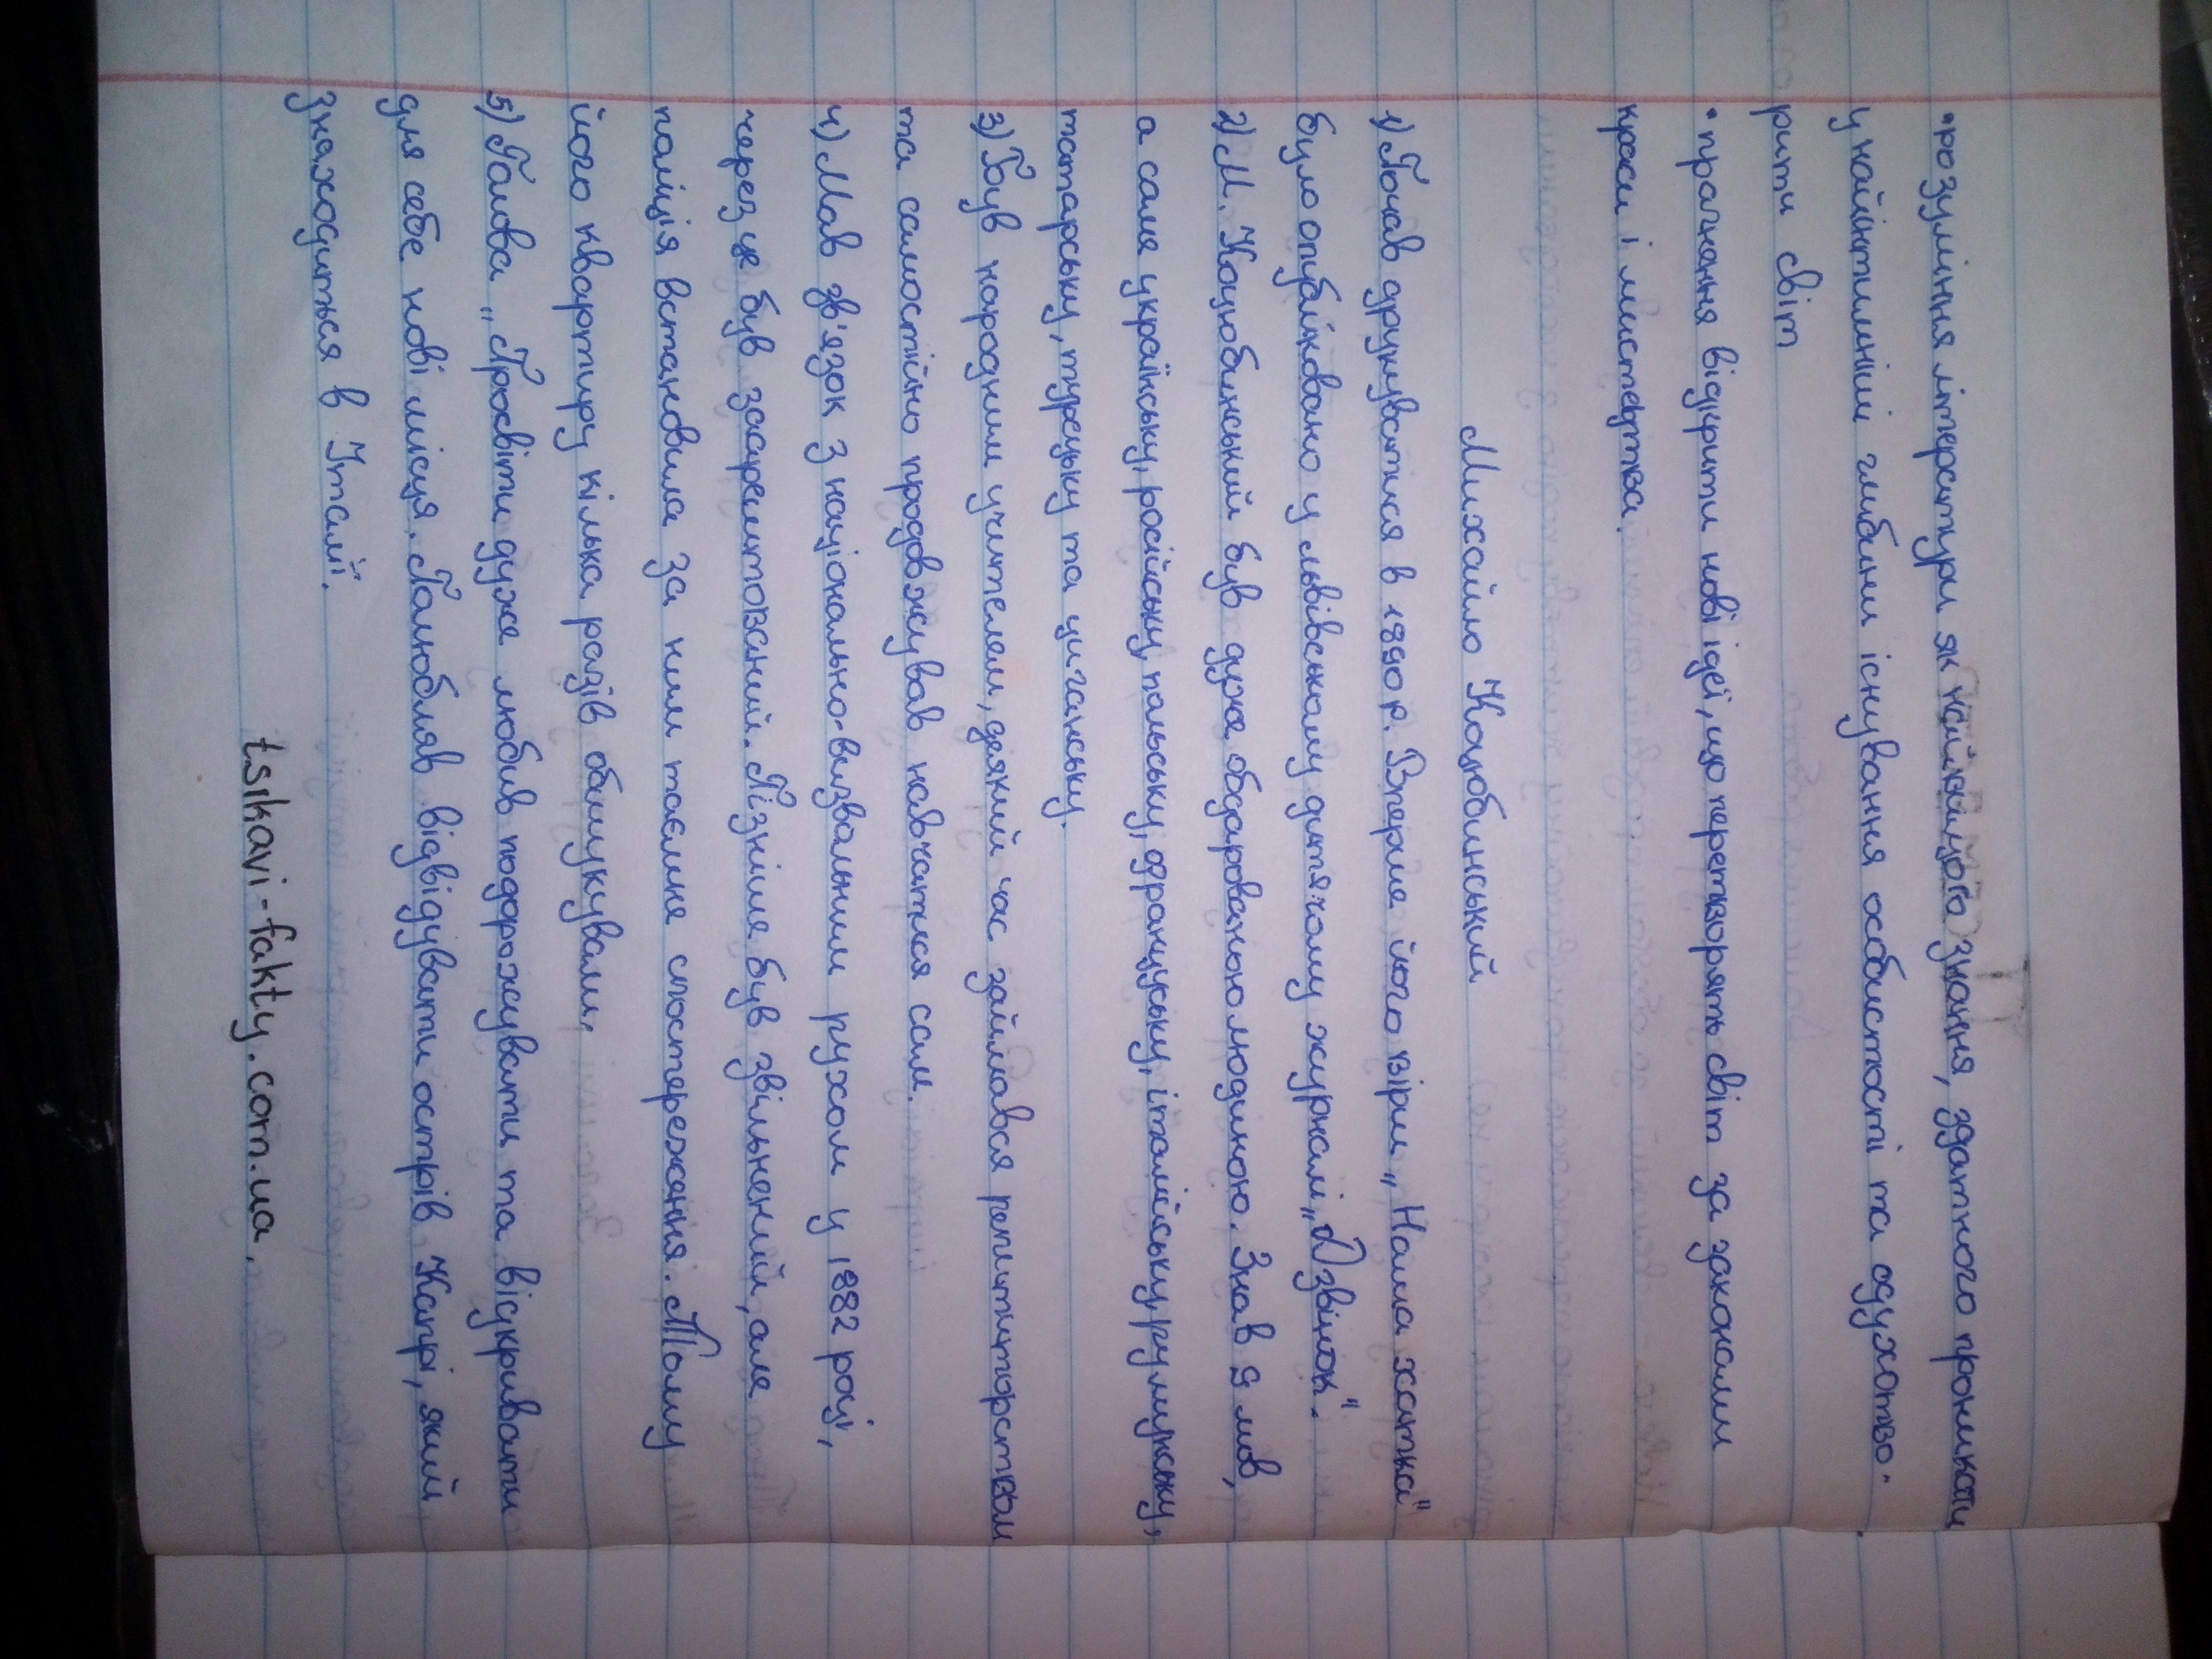 • розуміння літератури як найвищого знання, здатного проникати
у найінтимніші глибини існування особистості та одухотво-
рити світ
• прагнення відкрити нові ідеї, що перетворять світ за законами
краси і мистецтва.
Михайло Коцюбинський
1) Почав друкуватися в 1890 р. Вперше його вірш „Наша хатка"
було опубліковано у львівському дитячому журналі „Дзвінок".
2) М. Коцюбинський був дуже обдарованою людиною. Знав 9 мов,
а саме українську, російську, польську, французьку, італійську, румунську,
татарську, турецьку та циганську.
3) Був народним учителем, деякий час займався репититорством
та самостійно продовжував навчатися сам.
4) Мав зв'язок з національно-визвольним рухом у 1882 році,
через це був заарештований. Пізніше був звільнений, але
поліція встановила за ним таємне спостереження. Тому
його квартиру кілька разів обшукували.
5) Голова „Просвіти дуже любив подорожувати та відкривати
для себе нові місця. Полюбляв відвідувати острів Капрі, який
знаходиться в Італії.
tsikavi-fakty.com.ua.